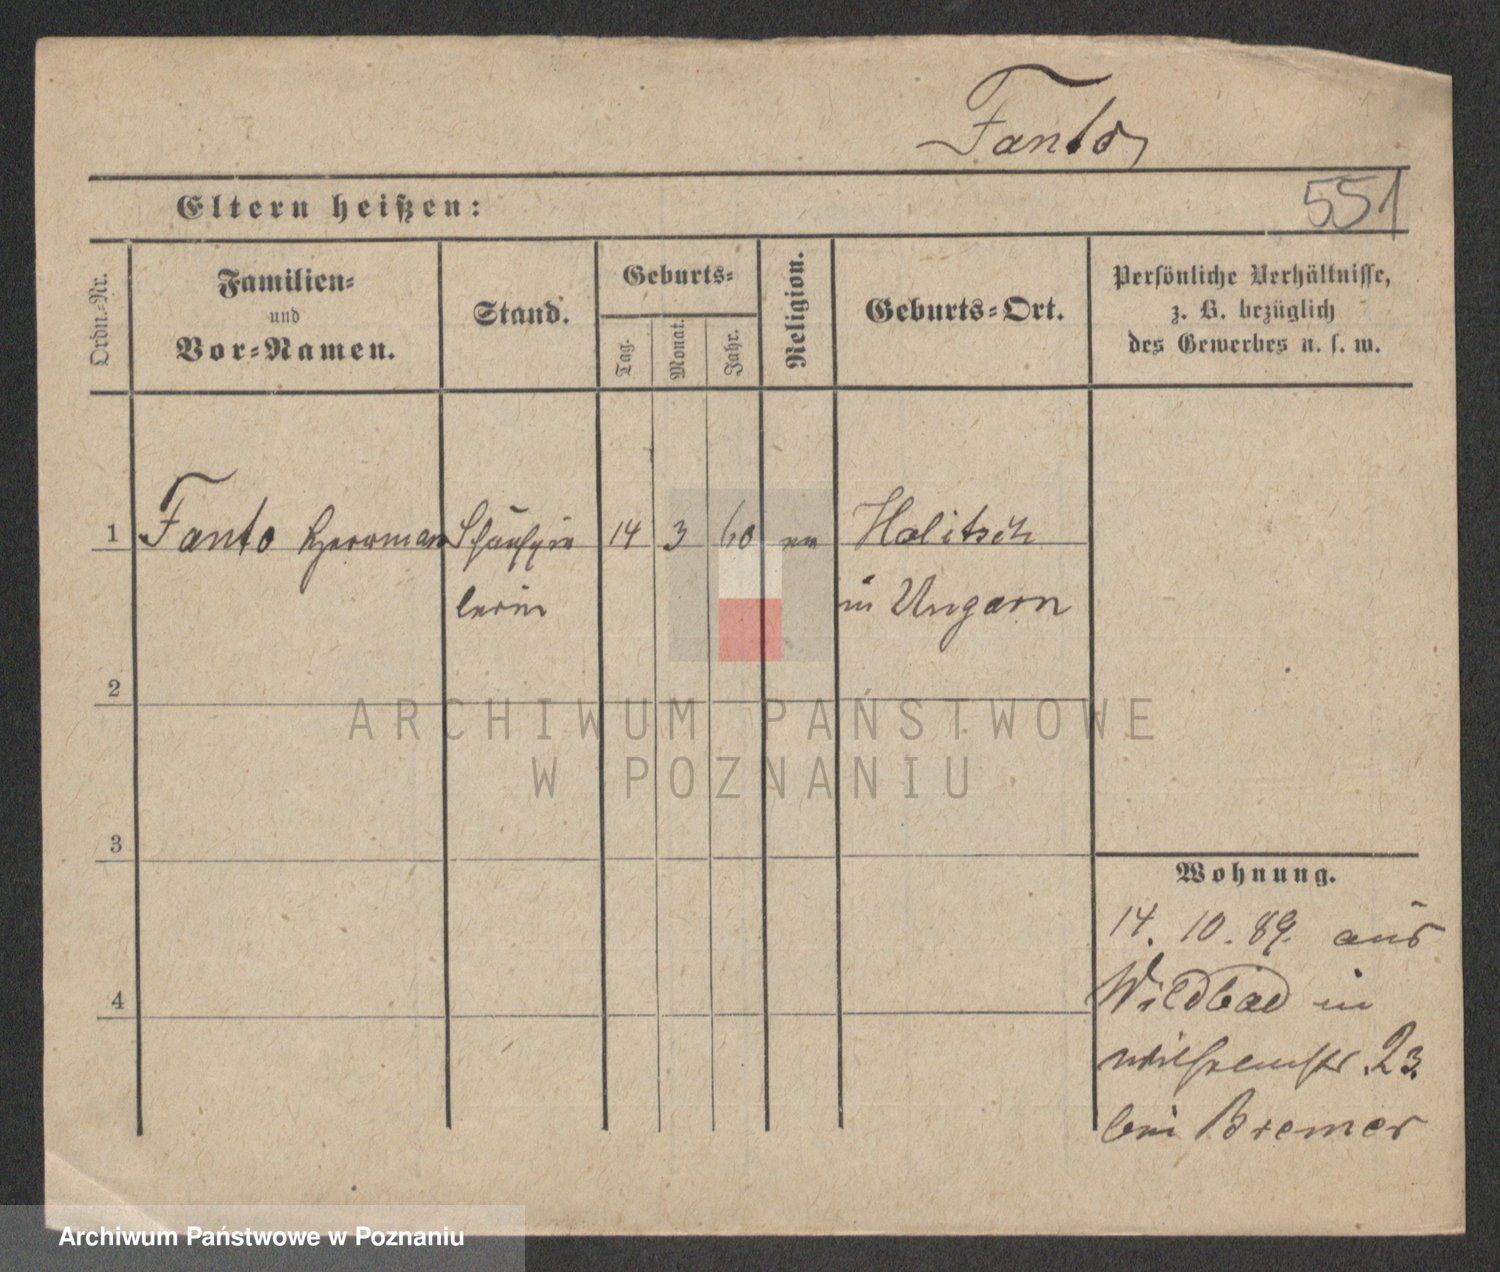 Fanto
Eltern heißen:
551
Ordn.-Nr.
Familien-
und
Vor-Namen.
Stand.
Geburts-
Tag.
Monat.
Jahr.
Religion.
Geburts-Ort.
Persönliche Verhältnisse,
z. B. bezüglich
des Gewerbes u. s. w.
1 Fanto Herrman Schauspie 14 3 60 Holitsch
lerin in Ungarn
2
ARCHIWUM PAŃSTWOWE
W POZNANIU
3
Wohnung.
14. 10. 89. aus
4 Wildbad in
Wilhelmstr. 23.
bei Bremer
Archiwum Państwowe w Poznaniu